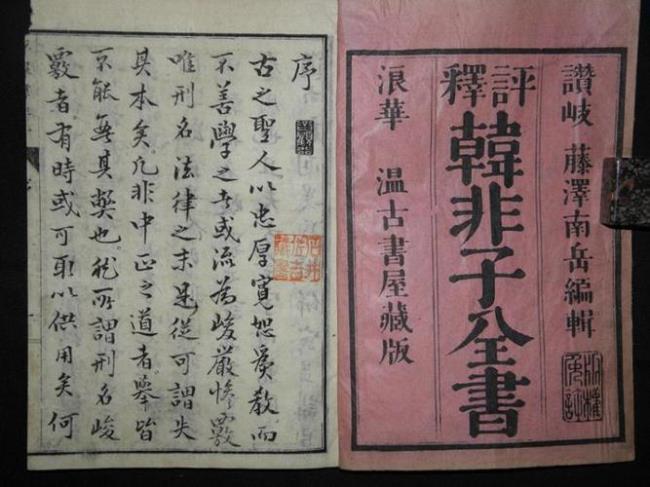 讚岐 藤澤南岳編輯
評釋
韓非子全書
浪華 温古書屋藏版
版權免許
序
古之聖人以忠厚寬恕爲教而
不善學之者或流為峻嚴慘覈
唯刑名法律之末是從可謂失
其本矣凡非中正之道者舉皆
不能無其弊也然所謂刑名峻
覈者有時或可取以供用矣何